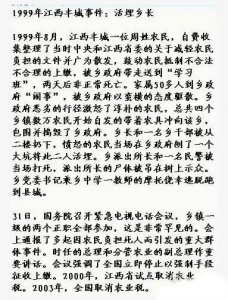 1999年江西丰城事件：活埋乡长
1999年8月，江西丰城一位周姓农民，自费收
集整理了当时中央和江西省委的关于减轻农民
负担的文件并广为散发，鼓动农民抵制不合法
不合理的上缴，被乡政府带走送到“学习
班”，两天后非正常死亡。家属50多人到乡政
府“闹事”，被乡政府以蛮横的态度驱散。乡
政府恶劣的行径激怒了淳朴的农民，总共四个
乡镇数万农民开始自发的带着农具冲向该乡，
包围并捣毁了乡政府。乡长和一名乡干部被从
二楼扔下，愤怒的农民当场在乡政府刨了一个
大坑将此二人活埋。乡派出所长和一名民警被
当场打死，派出所长的尸体被吊在树上示众。
乡党委书记乘乡中学一教师的摩托侥幸逃脱跑
到县城。
31日，国务院召开紧急电视电话会议，乡镇一
级的两个正职全部参加，这是非常罕见的。会
上通报了多起因农民负担死人而引发的重大群
体事件，时任的总理和分管农业的副总理作重
要讲话。会议强调了全国立即停止以强制手段
征收上缴。2000年，江西省试点取消农业
税。2003年，全国取消农业税。